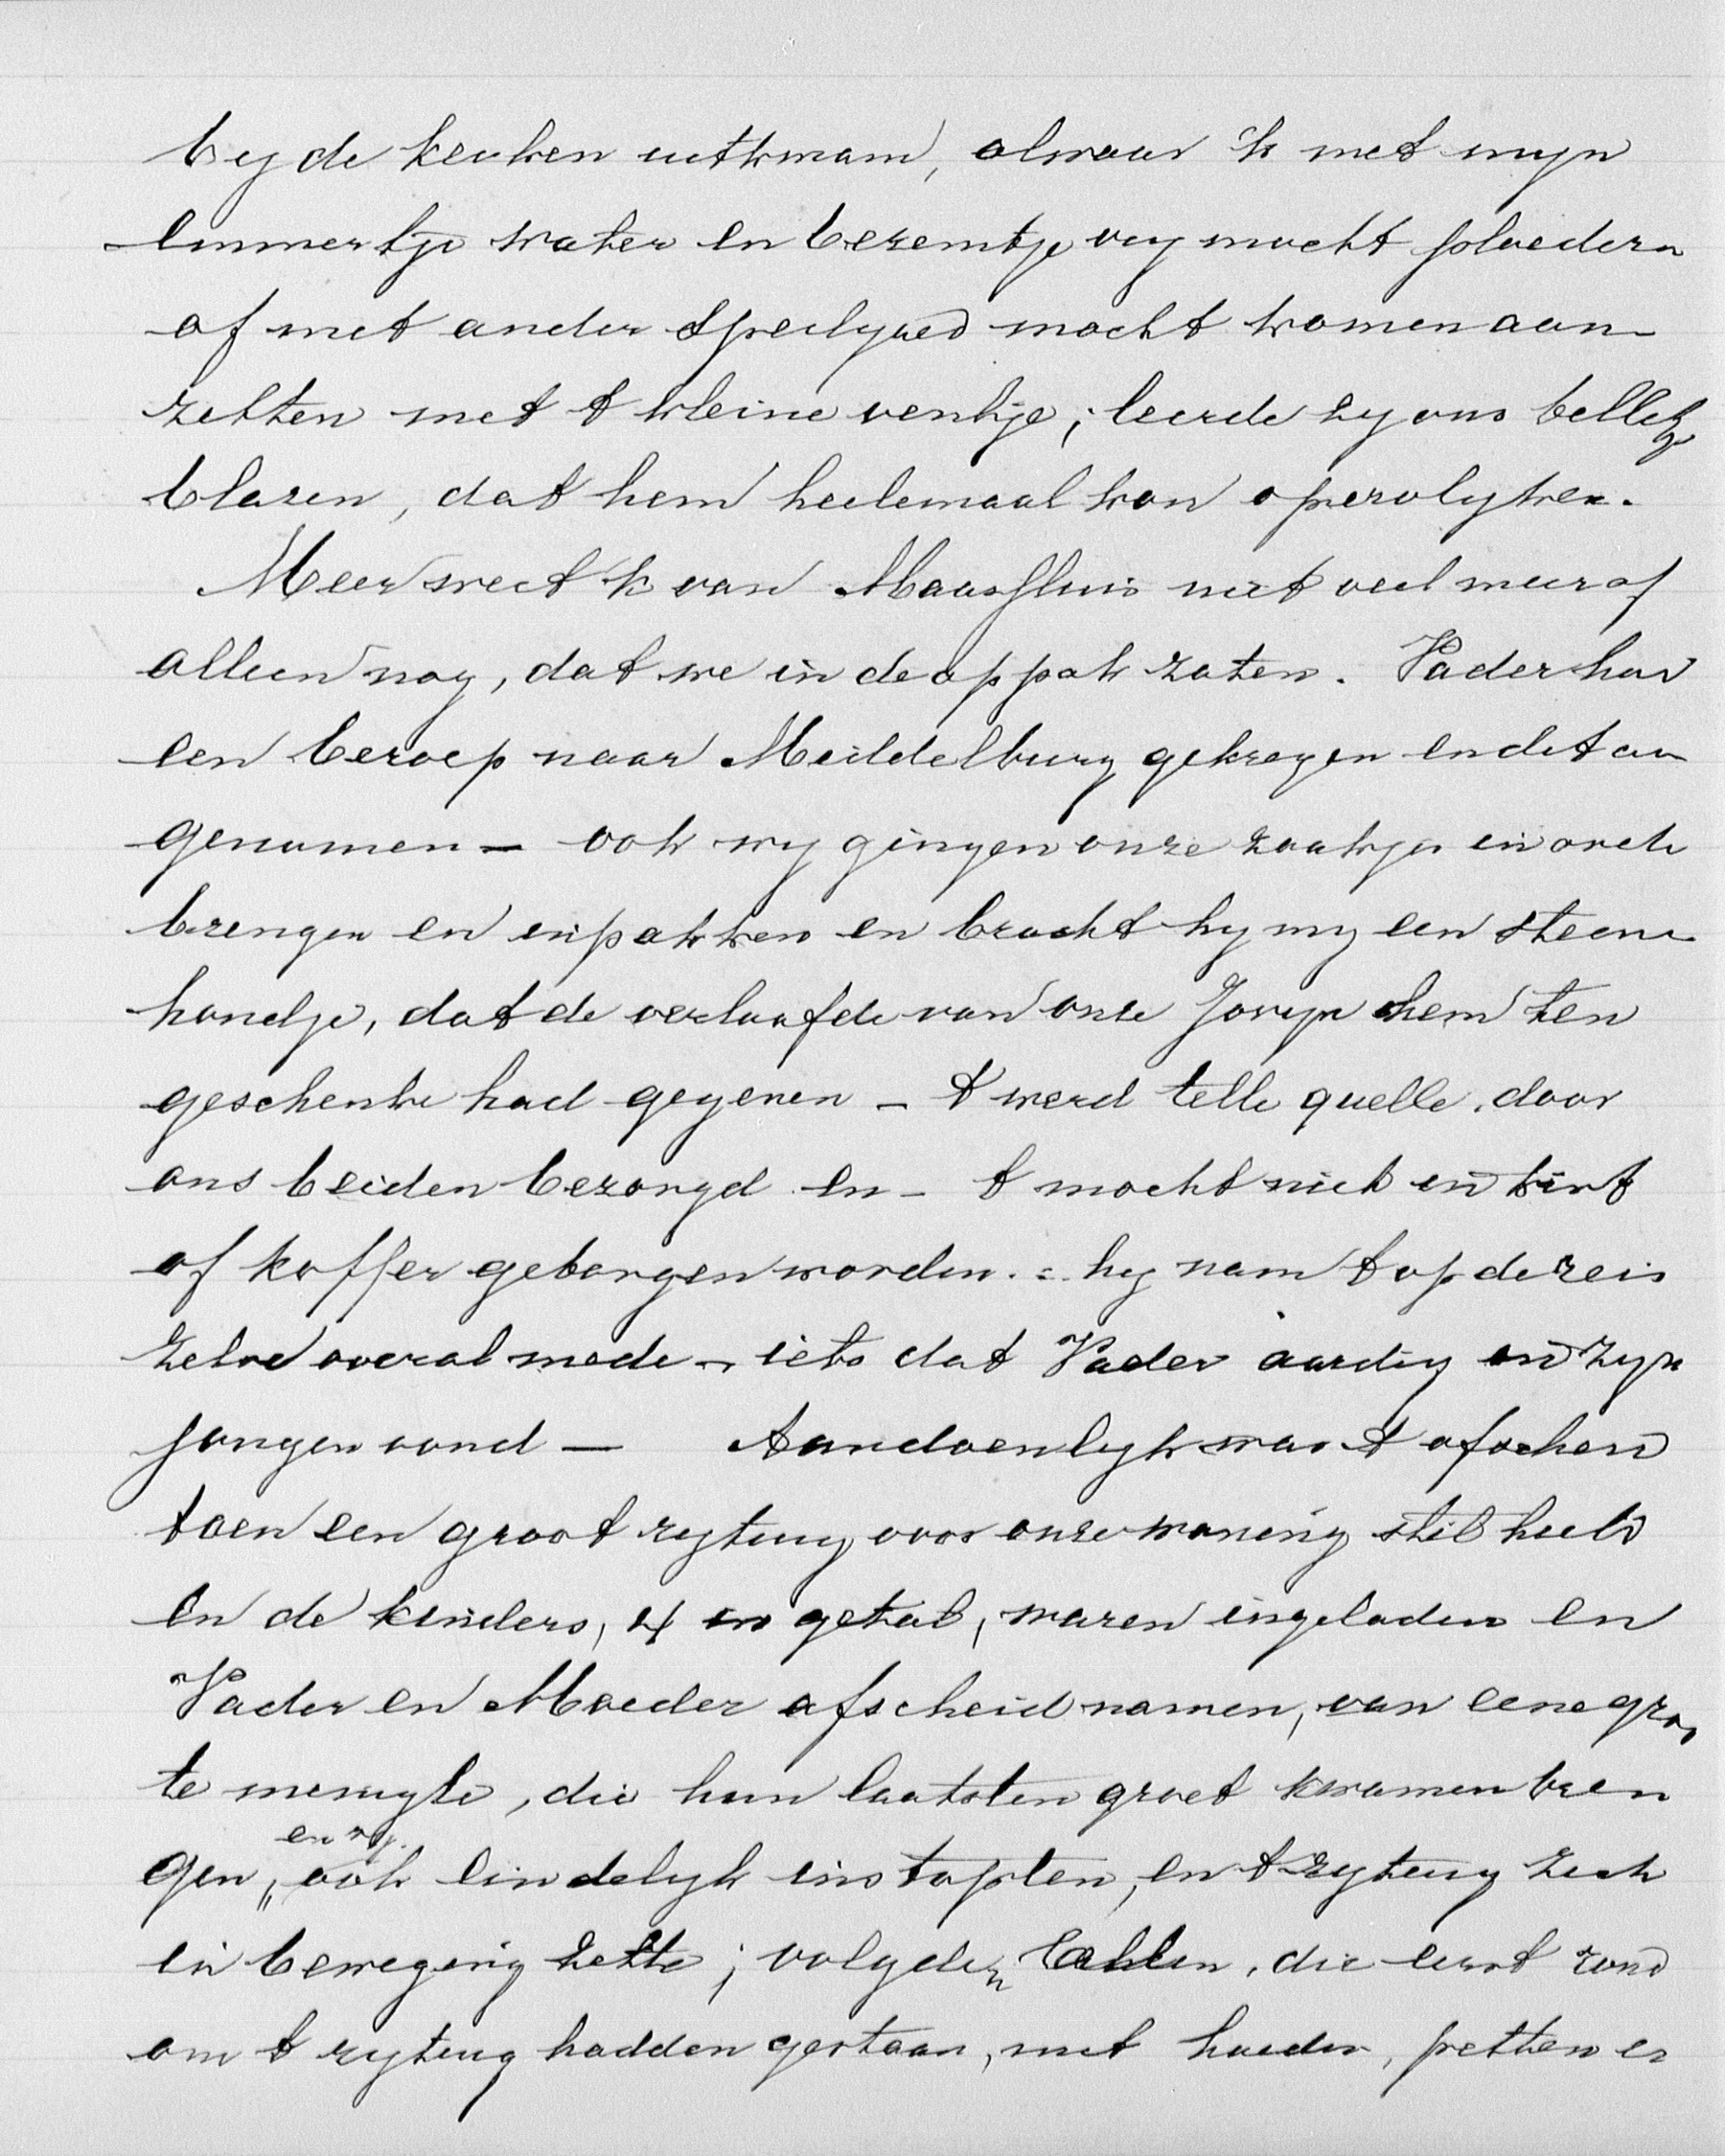 by de keuken uitkwam, alwaar 'k met myn
emmertje water en bezemtje vry mocht ploederen
of met ander speelgoed mocht komen aan-
zetten met 't kleine ventje; leerde hy ons belletje
blazen, dat hem heelemaal kon opvrolyken.
Meer weet 'k van Maassluis niet veel meer af
alleen nog, dat we in de oppak zaten. Vader had
een beroep naar Middelburg gekregen en dit aan
genomen — ook wy gingen onze zaakjes in orde
brengen en inpakken en bracht hy my een steenen
hondje, dat de verloofde van onze Jovyn hem ten
geschenke had gegeven — 't werd telle quelle, door
ons beiden bezorgd en — 't mocht niet in kist
of koffer geborgen worden. = hy nam 't op de reis
zelve overal mede — iets dat Vader aardig in zyn
jongen vond — Aandoenlyk was 't afscheid
toen een groot rytuig voor onze woning stil hield
en de kinders, 4 in getal, waren ingeladen en
Vader en Moeder afscheid namen, van eene groo
te menigte, die hun laatsten groet kwamen bren
gen, en zy ook eindelyk instapten, en 't rytuig zich
in beweging zette; volgden allen, die eerst rond
om 't rytuig hadden gestaan, met hoeden, petten en